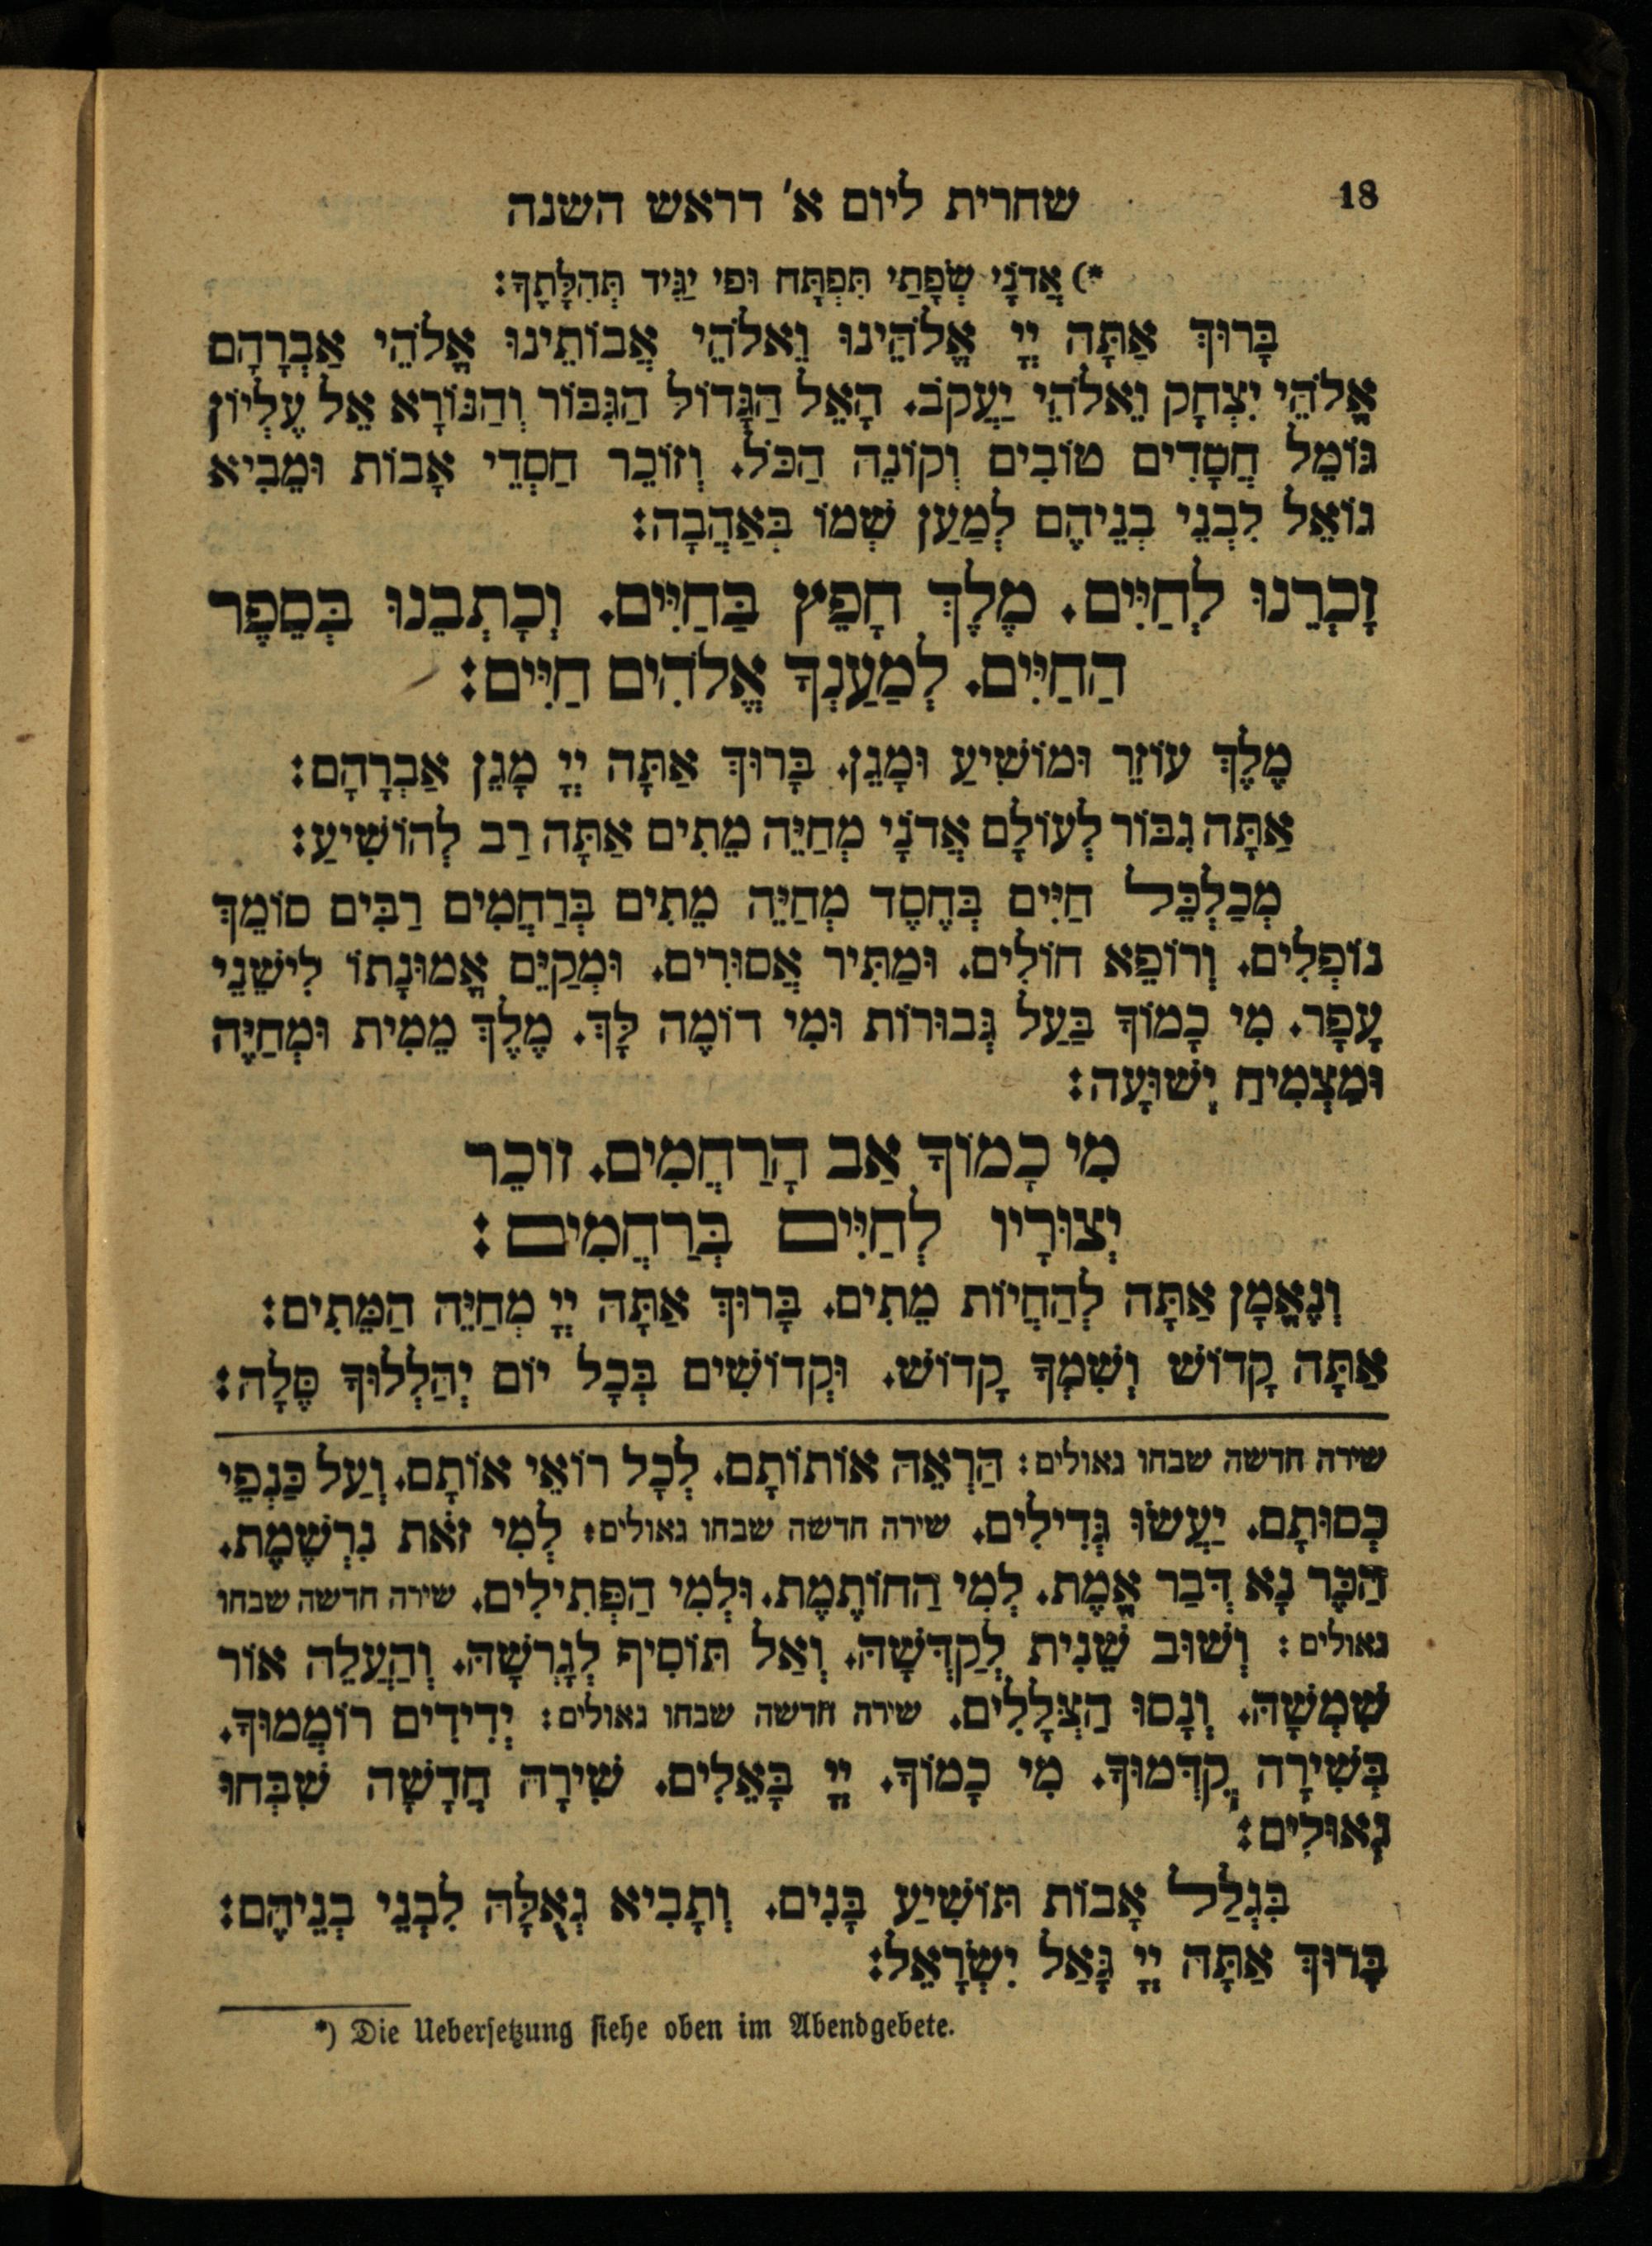 18
שחרית ליום א׳ דראש השנה
*) אֲדֹנָי שְׂפָתַי תִּפְתָּח וּפִי יַגִּיד תְּהִלָּתֶךָ:
בָּרוּךְ אַתָּה יְיָ אֱלֹהֵינוּ וֵאלֹהֵי אֲבוֹתֵינוּ אֱלֹהֵי אַבְרָהָם
אֱלֹהֵי יִצְחָק וֵאלֹהֵי יַעֲקֹב. הָאֵל הַגָּדוֹל הַגִּבּוֹר וְהַנּוֹרָא אֵל עֶלְיוֹן
גּוֹמֵל חֲסָדִים טוֹבִים וְקוֹנֵה הַכֹּל. וְזוֹכֵר חַסְדֵי אָבוֹת וּמֵבִיא
גוֹאֵל לִבְנֵי בְנֵיהֶם לְמַעַן שְׁמוֹ בְּאַהֲבָה:
זָכְרֵנוּ לְחַיִּים. מֶלֶךְ חָפֵץ בַּחַיִּים. וְכָתְבֵנוּ בְּסֵפֶר
הַחַיִּים. לְמַעַנְךָ אֱלֹהִים חַיִּים:
מֶלֶךְ עוֹזֵר וּמוֹשִׁיעַ וּמָגֵן. בָּרוּךְ אַתָּה יְיָ מָגֵן אַבְרָהָם:
אַתָּה גִבּוֹר לְעוֹלָם אֲדֹנָי מְחַיֵּה מֵתִים אַתָּה רַב לְהוֹשִׁיעַ:
מְכַלְכֵּל חַיִּים בְּחֶסֶד מְחַיֵּה מֵתִים בְּרַחֲמִים רַבִּים סוֹמֵךְ
נוֹפְלִים. וְרוֹפֵא חוֹלִים. וּמַתִּיר אֲסוּרִים. וּמְקַיֵּם אֱמוּנָתוֹ לִישֵׁנֵי
עָפָר. מִי כָמוֹךָ בַּעַל גְּבוּרוֹת וּמִי דוֹמֶה לָּךְ. מֶלֶךְ מֵמִית וּמְחַיֶּה
וּמַצְמִיחַ יְשׁוּעָה:
מִי כָמוֹךָ אַב הָרַחֲמִים. זוֹכֵר
יְצוּרָיו לְחַיִּים בְּרַחֲמִים:
וְנֶאֱמָן אַתָּה לְהַחֲיוֹת מֵתִים. בָּרוּךְ אַתָּה יְיָ מְחַיֵּה הַמֵּתִים:
אַתָּה קָדוֹשׁ וְשִׁמְךָ קָדוֹשׁ. וּקְדוֹשִׁים בְּכָל יוֹם יְהַלְלוּךָ סֶּלָה:
שירה חדשה שבחו גאולים: הַרְאֵה אוֹתוֹתָם. לְכָל רוֹאֵי אוֹתָם. וְעַל כַּנְפֵי
כְּסוּתָם. יַעֲשׂוּ גְּדִילִים. שירה חדשה שבחו גאולים: לְמִי זֹאת נִרְשֶׁמֶת.
הַכֶּר נָא דְּבַר אֱמֶת. לְמִי הַחוֹתֶמֶת. וּלְמִי הַפְּתִילִים. שירה חדשה שבחו
גאולים: וְשׁוּב שֵׁנִית לְקַדְּשָׁהּ. וְאַל תּוֹסִיף לְגָרְשָׁהּ. וְהַעֲלֵה אוֹר
שִׁמְשָׁהּ. וְנָסוּ הַצְּלָלִים. שירה חדשה שבחו גאולים: יְדִידִים רוֹמֲמוּךָ.
בְּשִׁירָה קִדְּמוּךָ. מִי כָמוֹךָ. יְיָ בָּאֵלִים. שִׁירָה חֲדָשָׁה שִׁבְּחוּ
גְאוּלִים:
בִּגְלַל אָבוֹת תּוֹשִׁיעַ בָּנִים. וְתָבִיא גְאֻלָּה לִבְנֵי בְנֵיהֶם:
בָּרוּךְ אַתָּה יְיָ גָּאַל יִשְׂרָאֵל:
*) Die Uebersetzung siehe oben im Abendgebete.